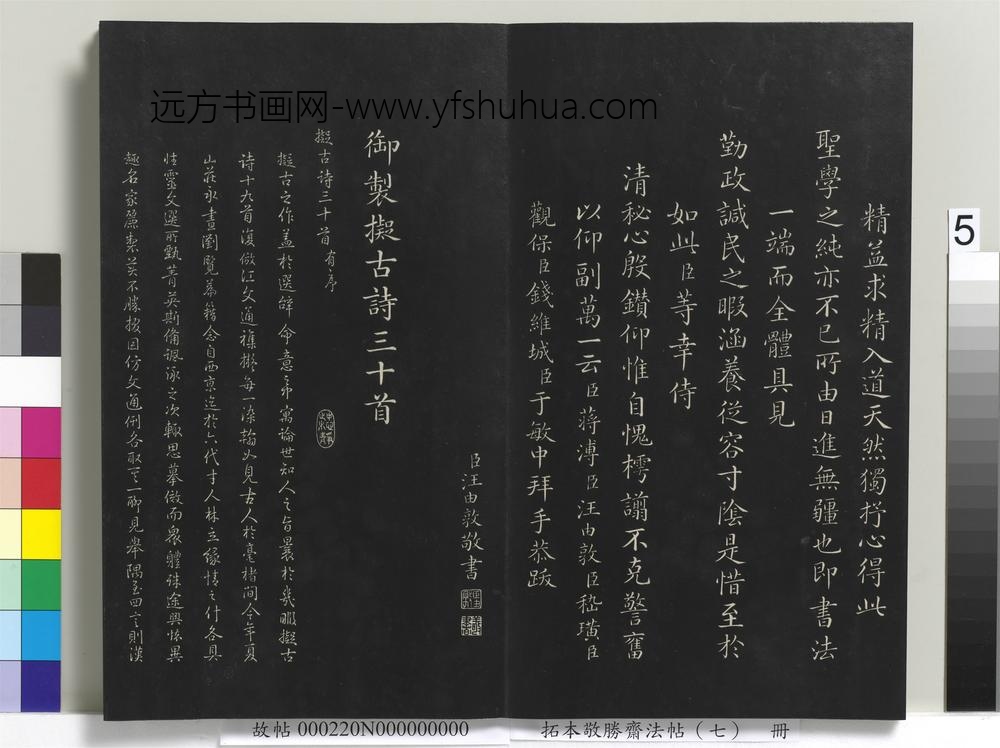 远方书画网-www.yfshuhua.com
精益求精入道天然獨抒心得此
聖學之純亦不已所由日進無疆也即書法
一端而全體具見
勤政諴民之暇涵養從容寸陰是惜至於
如此臣等幸侍
清秘心殷鑽仰惟自愧樗譾不克警奮
以仰副萬一云臣蔣溥臣汪由敦臣嵇璜臣
觀保臣錢維城臣于敏中拜手恭跋
臣汪由敦敬書
御製擬古詩三十首
擬古詩三十首有序
擬古之作蓋於選辭命意寄寓論世知人之旨曩於幾暇擬古
詩十九首復倣江文通雜擬每一染翰如見古人於毫楮間今年夏
山莊永晝瀏覽篇籍念自西京迄於六代才人林立緣情之什各具
性靈文選所甄菁英斯備諷詠之次輒思摹倣而眾體殊途興悰異
趣名家麗製美不勝掇因仿文通例各取其一聊見舉隅至四言則漢
5
故帖 000220N000000000
拓本敬勝齋法帖（七） 冊